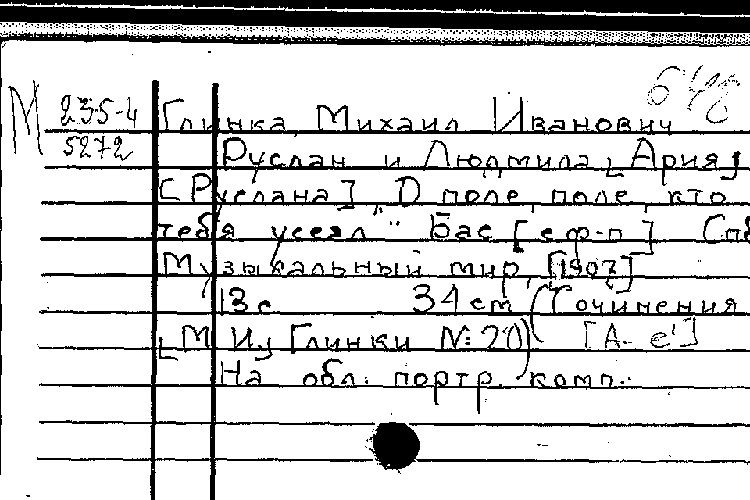 М 235-4
5272
648
Глинка, Михаил Иванович
Руслан и Людмила [Ария]
[Руслана] "О поле, поле, кто
тебя усеял" Бас [с ф-п] Спб
Музыкальный мир, [1907]
13 с 34 cm (Сочинения
[М. И.] Глинки № 20) [A- e¹]
На обл. портр. комп.